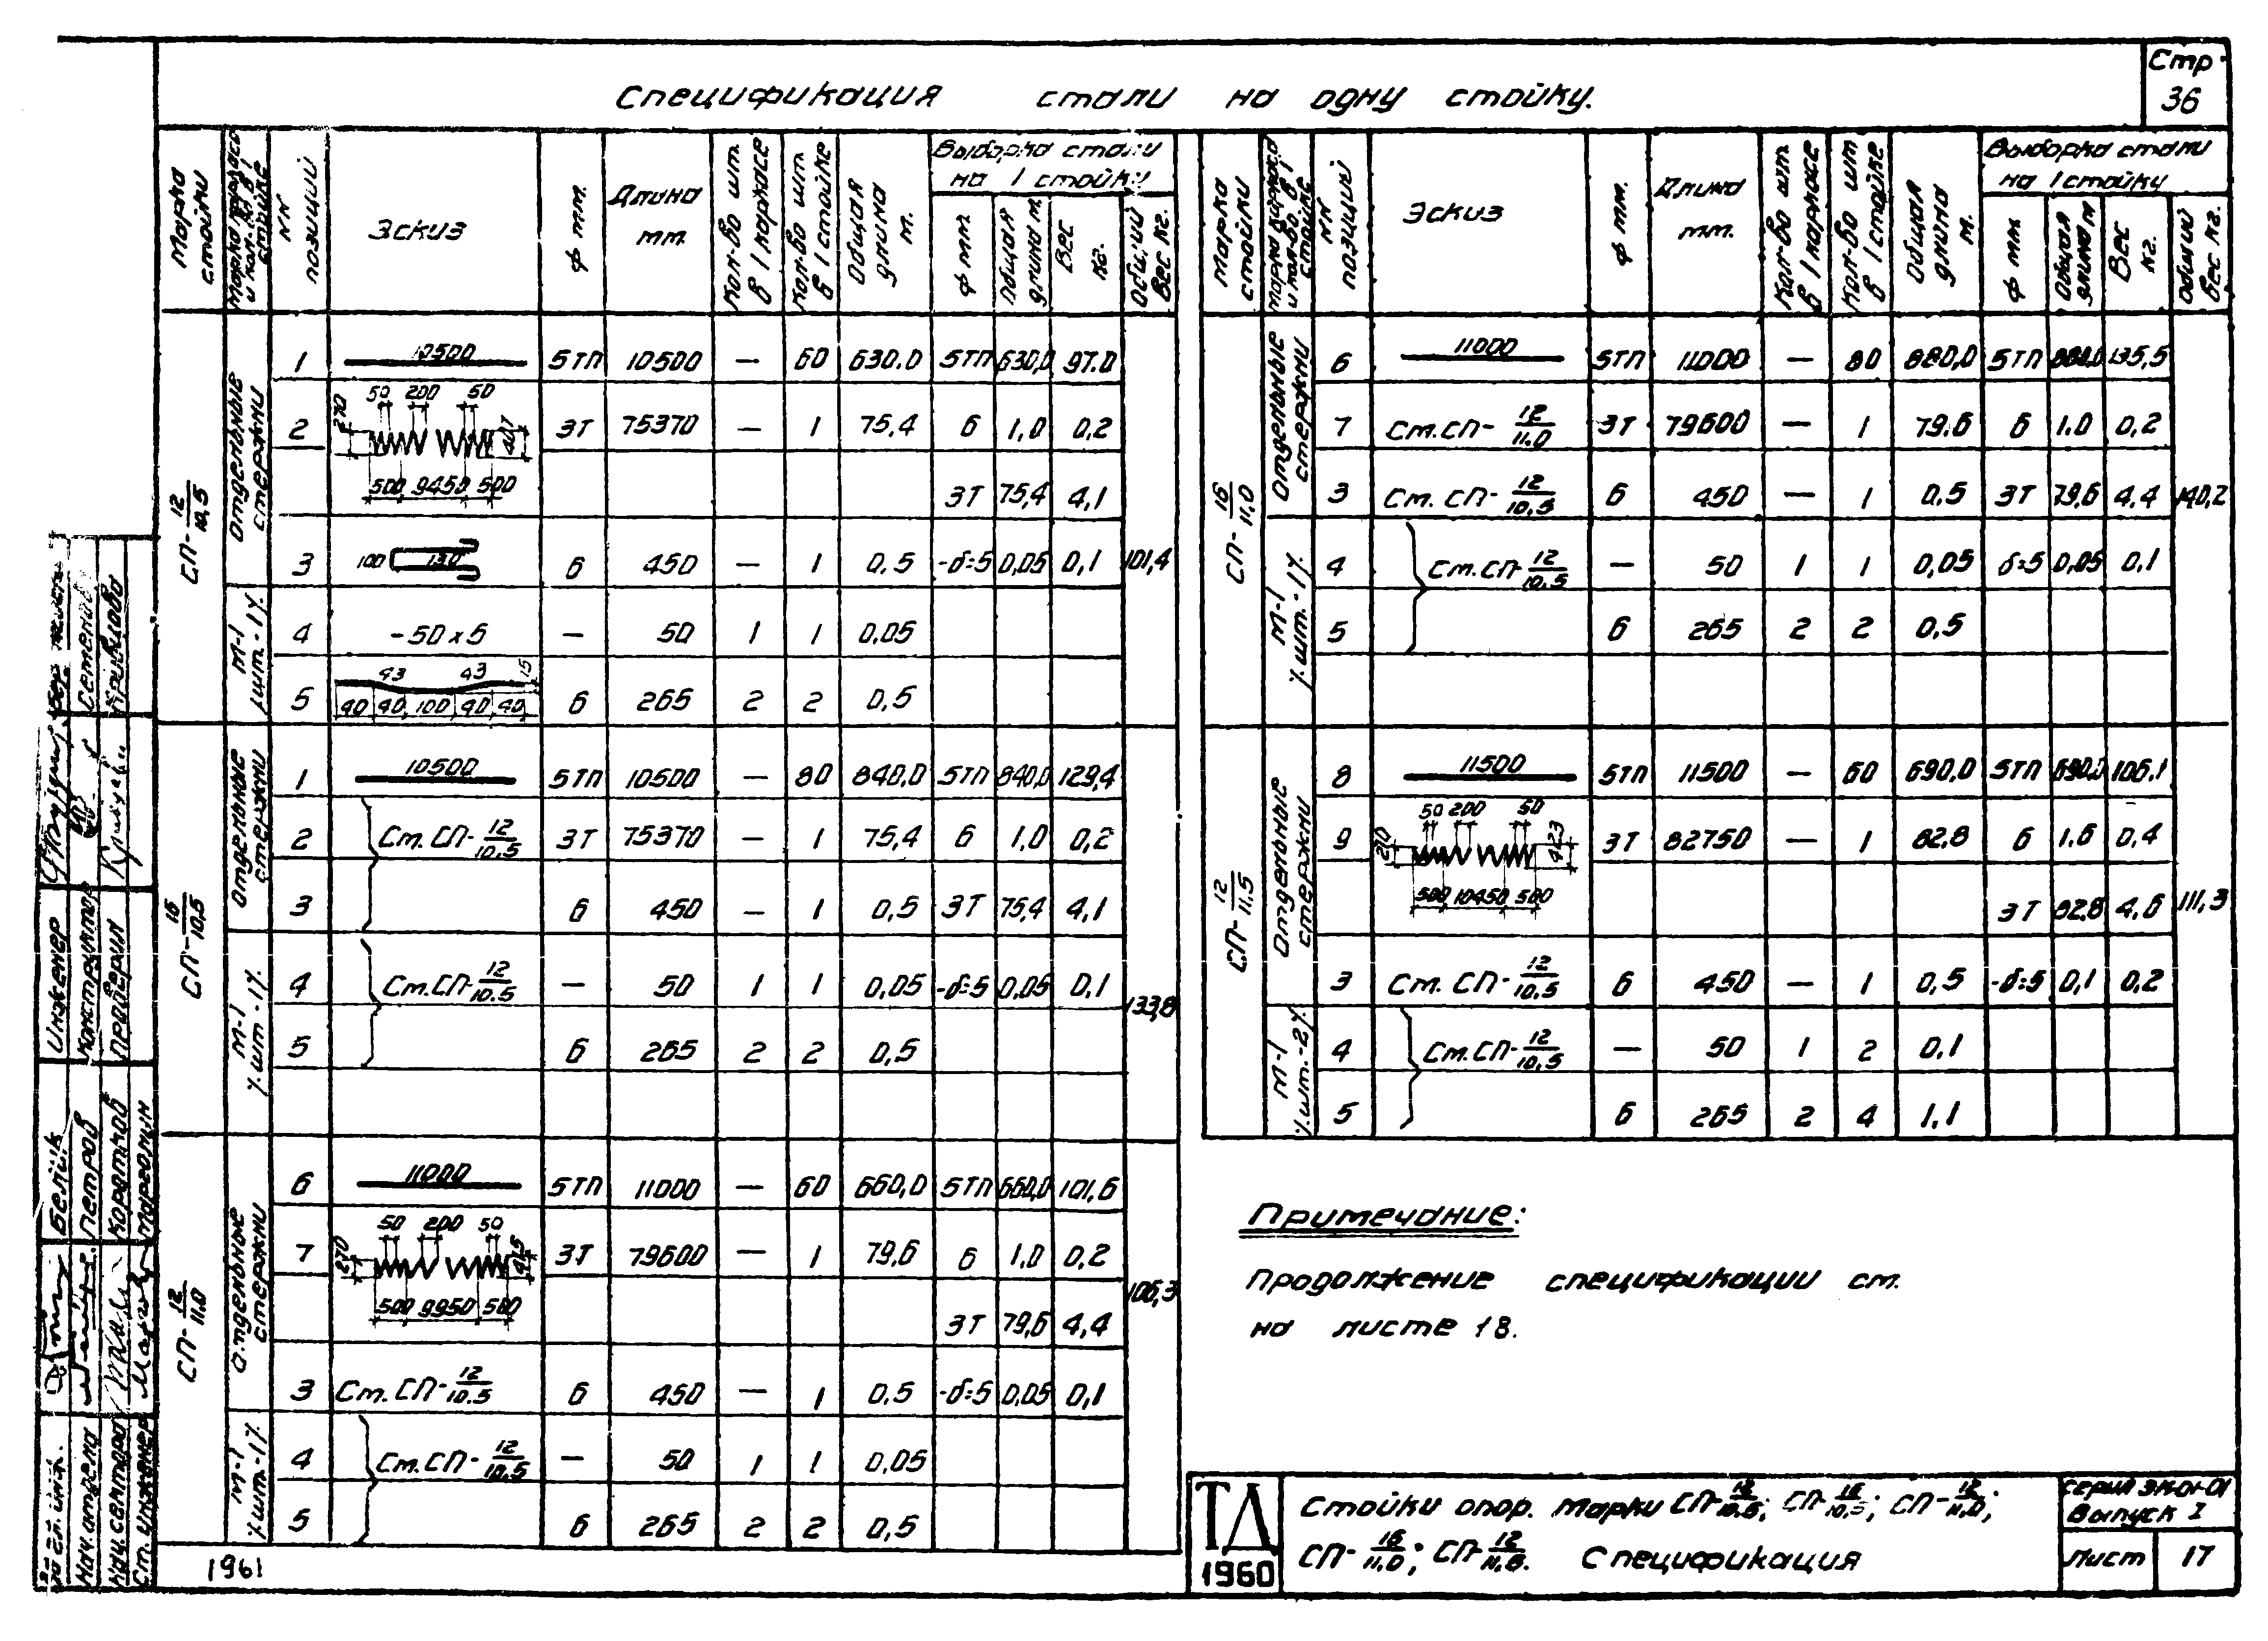 Стр.
36
Спецификация стали на одну стойку.
Марка стойки | Марка каркаса и кол-во в 1 стойке | NN позиций | Эскиз | ф мм. | Длина мм. | Кол-во шт. в 1 каркасе | Кол-во шт. в 1 стойке | Общая длина м. | Выборка стали на 1 стойку
ф мм | Общая длина м. | Вес кг. | Общий Вес кг.
СП-12/10,5 | Отдельные стержни | 1 | 10500 | 5ТП | 10500 | — | 60 | 630,0 | 5ТП | 630,0 | 97.0 | 101,4
2 | 50 200 50 270 407 500 9450 500 | 3Т | 75370 | — | 1 | 75,4 | 6 | 1,0 | 0,2
3Т | 75,4 | 4,1
3 | 100 130 | 6 | 450 | — | 1 | 0,5 | -δ=5 | 0,05 | 0,1
М-1 шт.-1 | 4 | -50х5 | — | 50 | 1 | 1 | 0,05
5 | 43 43 15 40 40 100 40 40 | 6 | 265 | 2 | 2 | 0,5
СП-16/10,5 | Отдельные стержни | 1 | 10500 | 5ТП | 10500 | — | 80 | 840,0 | 5ТП | 840,0 | 129,4 | 133,8
2 | Ст. СП-12/10.5 | 3Т | 75370 | — | 1 | 75,4 | 6 | 1,0 | 0,2
3 | 6 | 450 | — | 1 | 0,5 | 3Т | 75,4 | 4,1
М-1 шт.-1 | 4 | Ст.СП-12/10.5 | — | 50 | 1 | 1 | 0,05 | -δ=5 | 0,05 | 0,1
5 | 6 | 265 | 2 | 2 | 0,5
СП-12/11.0 | Отдельные стержни | 6 | 11000 | 5ТП | 11000 | — | 60 | 660,0 | 5ТП | 660,0 | 101,6 | 106,3
7 | 50 200 50 270 415 500 9950 500 | 3Т | 79600 | — | 1 | 79,6 | 6 | 1,0 | 0,2
3Т | 79,6 | 4,4
3 | Ст. СП-12/10.5 | 6 | 450 | — | 1 | 0.5 | -δ=5 | 0,05 | 0,1
М-1 шт.-1 | 4 | Ст.СП-12/10.5 | — | 50 | 1 | 1 | 0,05
5 | 6 | 265 | 2 | 2 | 0,5
1961
Марка стойки | Марка каркаса и кол-во в 1 стойке | NN позиций | Эскиз | ф мм. | Длина мм. | Кол-во шт в 1 каркасе | Кол-во шт в 1 стойке | Общая длина м. | Выборка стали на 1 стойку
ф мм | Общая длина м | Вес кг. | Общий вес кг.
СП-16/11,0 | Отдельные стержни | 6 | 11000 | 5ТП | 11000 | — | 80 | 880,0 | 5ТП | 880,0 | 135,5 | 140,2
7 | Ст.СП-12/11.0 | 3Т | 79600 | — | 1 | 79.6 | 6 | 1.0 | 0,2
3 | Ст. СП-12/10,5 | 6 | 450 | — | 1 | 0.5 | 3Т | 79,6 | 4,4
М-1 шт.-1 | 4 | Ст.СП-12/10.5 | — | 50 | 1 | 1 | 0,05 | δ=5 | 0,05 | 0,1
5 | 6 | 265 | 2 | 2 | 0.5
СП-12/11.5 | Отдельные стержни | 8 | 11500 | 5ТП | 11500 | — | 60 | 690,0 | 5ТП | 690,0 | 106.1 | 111,3
9 | 50 200 50 270 423 500 10450 500 | 3Т | 82750 | — | 1 | 82.8 | 6 | 1.6 | 0,4
3Т | 82,8 | 4,6
3 | Ст. СП-12/10.5 | 6 | 450 | — | 1 | 0,5 | -δ=5 | 0,1 | 0,2
М-1 шт.-2 | 4 | Ст.СП-12/10,5 | — | 50 | 1 | 2 | 0,1
5 | 6 | 265 | 2 | 4 | 1,1
Примечание:
Продолжение спецификации см.
на листе 18.
ТД
1960
Стойки опор. Марки СП-12/10.5; СП-16/10,5; СП-12/11,0;
СП-16/11,0; СП-12/11,5. Спецификация
Серия ЭК-01-01
Выпуск I
Лист 17
Инженер
Конструктор
Проверил
Семенов
Кривцова
Белик
Петров
Коротков
Марголин
Нач. отдела
Нач. сектора
Ст. инженер